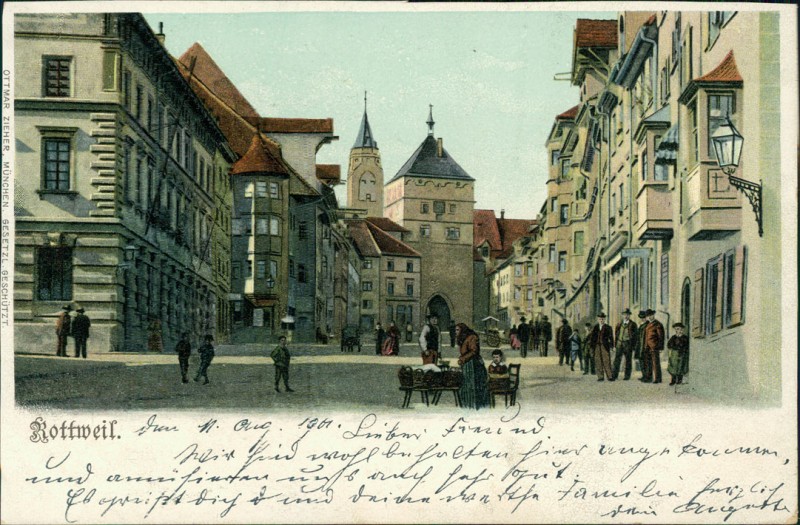 OTTMAR ZIEHER, MÜNCHEN. GESETZL. GESCHÜTZT.
Rottweil. den 11. Aug. 1901. Lieber Freund.
Wir sind wohlbehalten hier angekommen,
und amüsieren uns auch sehr gut.
Es grüßt dich und deine werthe Familie herzlich
dein